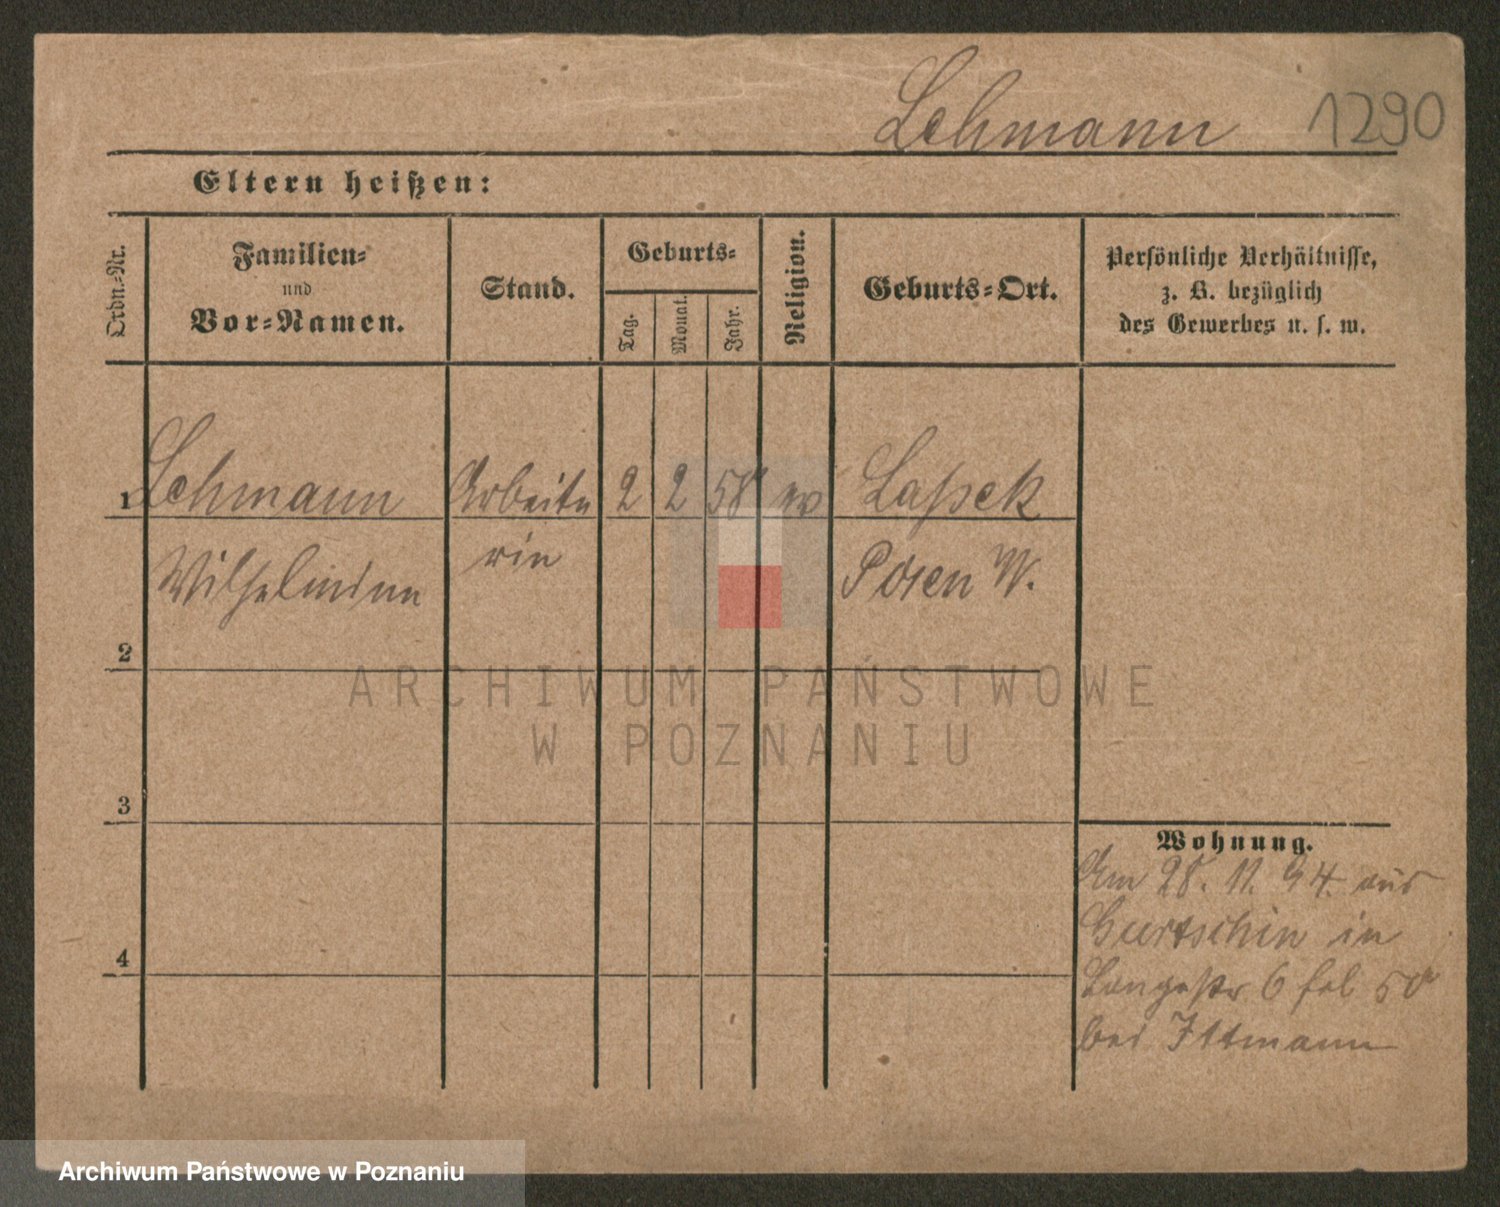 Lehmann 1290
Eltern heißen:
Ordn.-Nr.
Familien-
und
Vor-Namen.
Stand.
Geburts-
Tag. Monat. Jahr.
Religion.
Geburts-Ort.
Persönliche Verhältnisse,
z. B. bezüglich
des Gewerbes u. s. w.
1 Lehmann Arbeite 2 2 58 ev Laßek
Wilhelmine rin Posen W.
2
ARCHIWUM PAŃSTWOWE
W POZNANIU
3
Wohnung.
Am 28. 11. 94. aus
Gurtschin in
4
Langestr 6
bei Ittmann
Archiwum Państwowe w Poznaniu